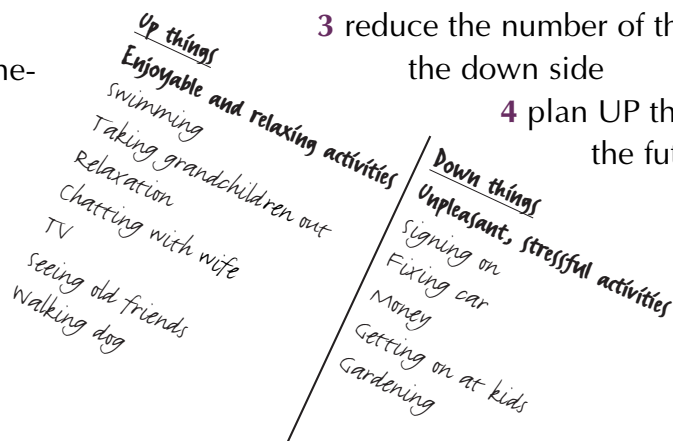 ne-
3 reduce the number of th
the down side
4 plan UP th
the fut
Up things
Enjoyable and relaxing activities
Swimming
Taking grandchildren out
Relaxation
Chatting with wife
TV
Seeing old friends
Walking dog
Down things
Unpleasant, stressful activities
Signing on
Fixing car
Money
Getting on at kids
Gardening